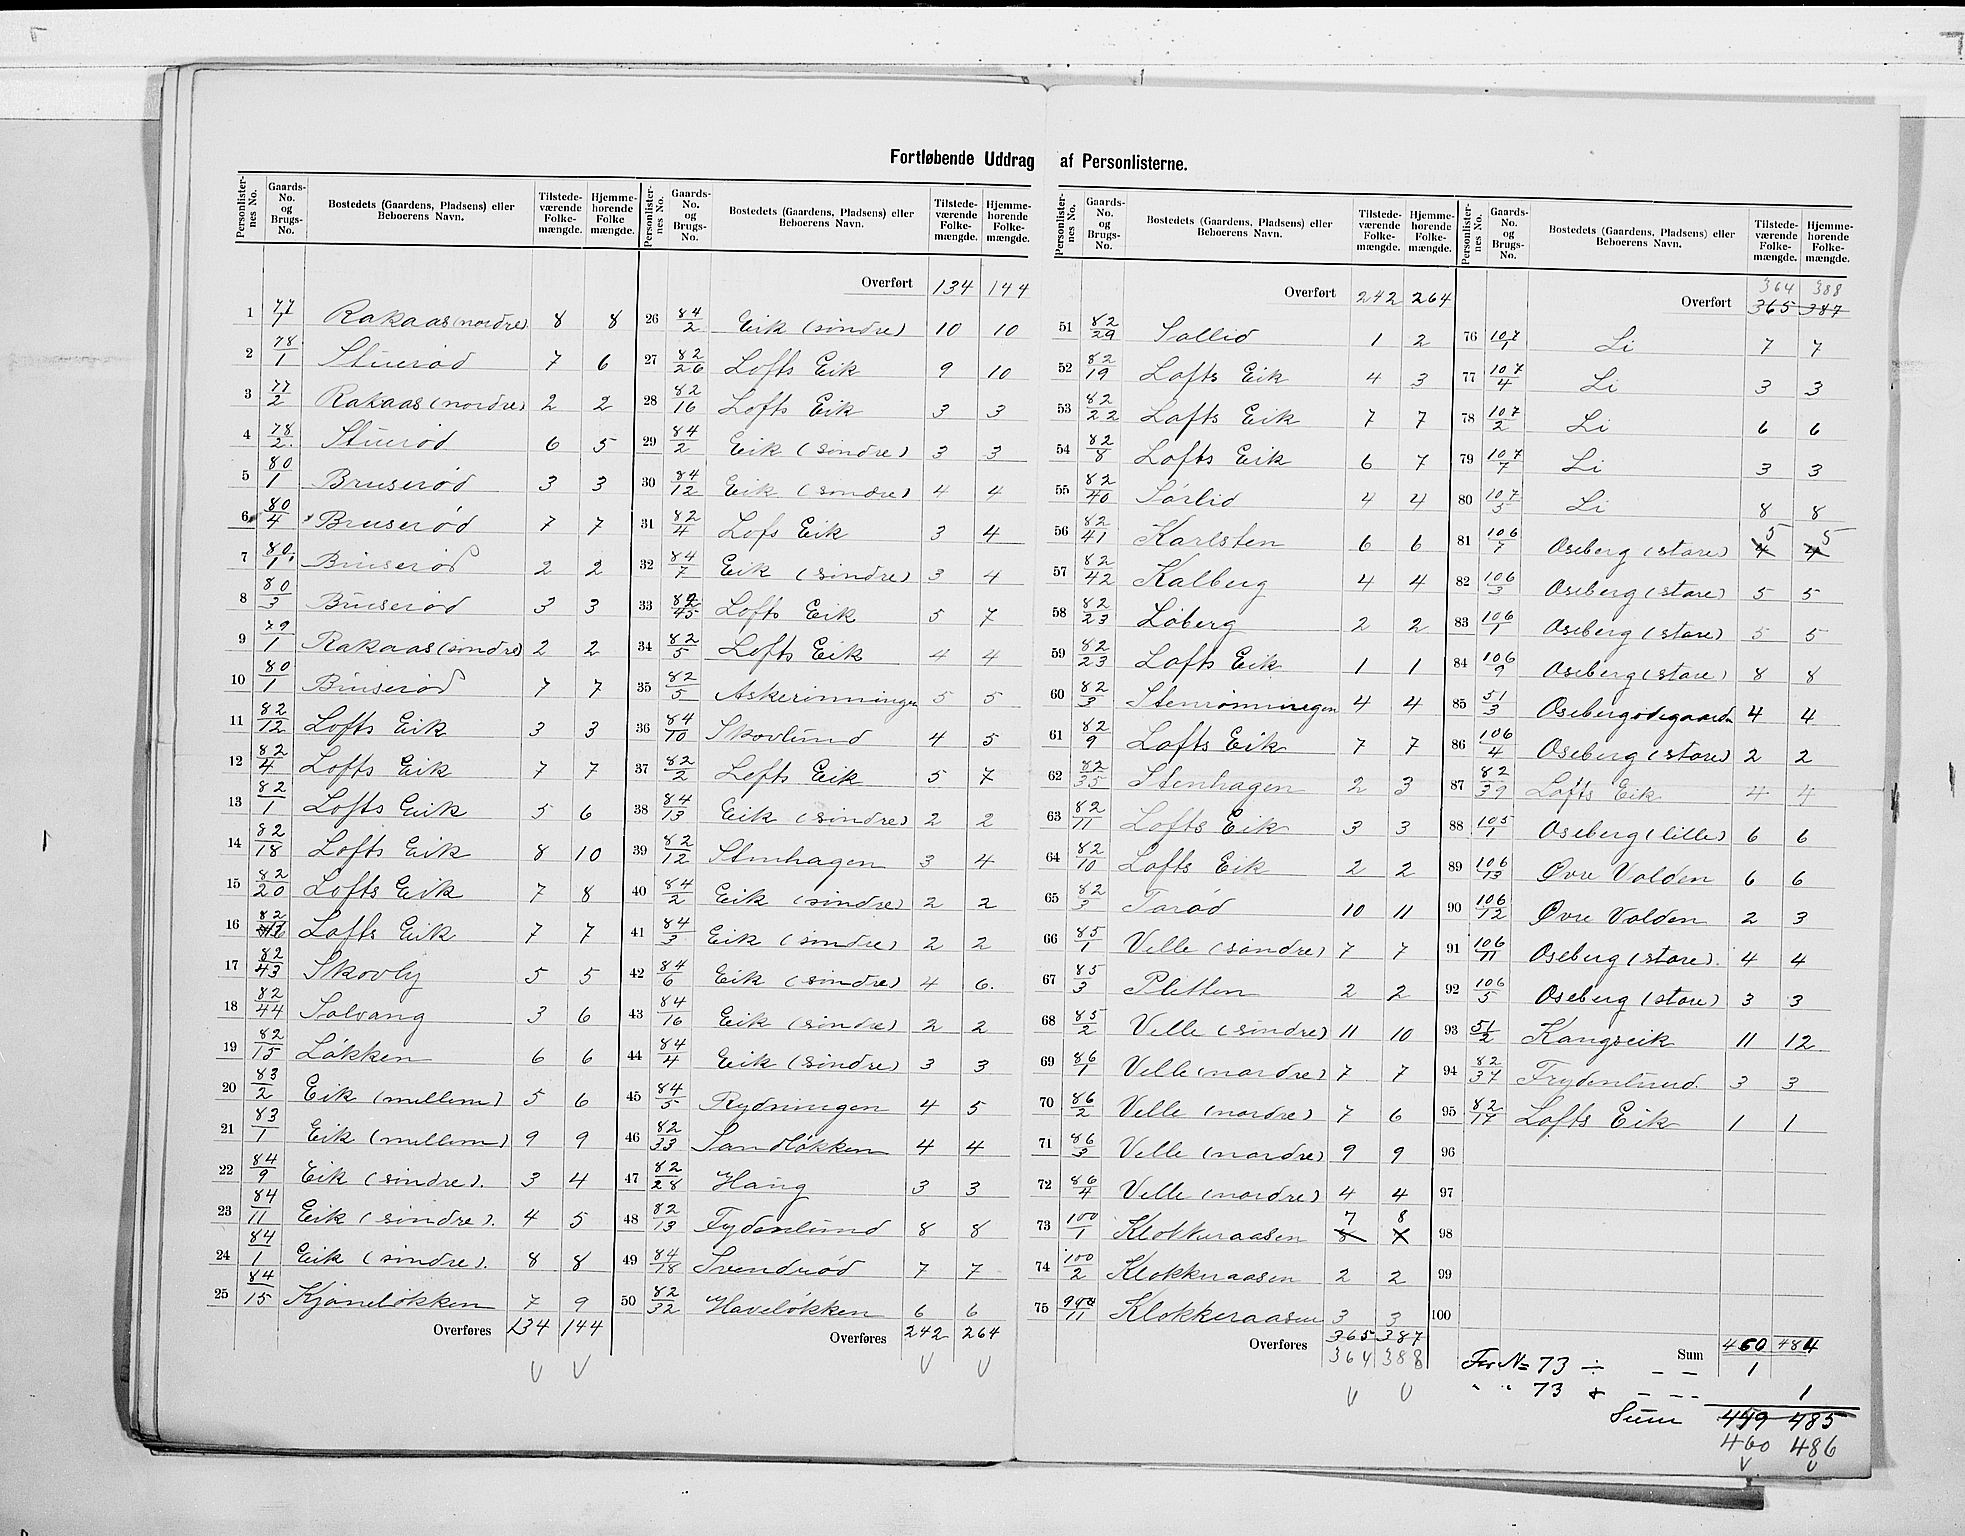 Fortløbende Uddrag af Personlisterne.
Personlisternes No. Gaards-No. og Brugs-No. Bostedets (Gaardens, Pladsens) eller Beboerens Navn. Tilstedeværende Folkemængde. Hjemmehørende Folkemængde.
1 77/1 Rakaas (nordre) 8 8
2 78/1 Stuerød 7 6
3 77/2 Rakaas (nordre) 2 2
4 78/2 Stuerød 6 5
5 80/1 Bruserød 3 3
6 80/4 Bruserød 7 7
7 80/1 Bruserød 2 2
8 80/3 Bruserød 3 3
9 79/1 Rakaas (søndre) 2 2
10 80/1 Bruserød 7 7
11 82/12 Lofts Eik 3 3
12 82/4 Lofts Eik 7 7
13 82/1 Lofts Eik 5 6
14 82/18 Lofts Eik 8 10
15 82/20 Lofts Eik 7 8
16 82/16 Lofts Eik 7 7
17 82/43 Skovly 5 5
18 82/44 Solvang 3 6
19 82/15 Løkken 6 6
20 83/2 Eik (mellem) 5 6
21 83/1 Eik (mellem) 9 9
22 84/9 Eik (søndre). 3 4
23 84/11 Eik (søndre). 4 5
24 84/1 Eik (søndre). 8 8
25 84/15 Kjoneløkken 7 9
Overføres 134 144
Personlisternes No. Gaards-No. og Brugs-No. Bostedets (Gaardens, Pladsens) eller Beboerens Navn. Tilstedeværende Folkemængde. Hjemmehørende Folkemængde.
Overført 134 144
26 84/2 Eik (søndre) 10 10
27 82/26 Lofts Eik 9 10
28 82/16 Lofts Eik 3 3
29 84/2 Eik (søndre) 3 3
30 84/12 Eik (søndre) 4 4
31 82/4 Lofs Eik 3 4
32 84/7 Eik (søndre) 3 4
33 82/45 Lofts Eik 5 7
34 82/5 Lofts Eik 4 4
35 82/5 Askerønningen 5 5
36 84/10 Skovlund 4 5
37 82/2 Lofts Eik 5 7
38 84/13 Eik (søndre) 2 2
39 82/12 Stenhagen 3 4
40 84/2 Eik (søndre) 2 2
41 84/3 Eik (søndre) 2 2
42 84/6 Eik (søndre) 4 6.
43 84/16 Eik (søndre) 2 2
44 84/4 Eik (søndre) 3 3
45 84/5 Rydningen 4 5
46 82/33 Sandløkken 4 4
47 82/28 Haug 3 3
48 82/13 Fydenlund 8 8
49 84/18 Svenderød 7 7
50 82/32 Haveløkken 6 6
Overføres 242 264
Personlisternes No. Gaards-No. og Brugs-No. Bostedets (Gaardens, Pladsens) eller Beboerens Navn. Tilstedeværende Folkemængde. Hjemmehørende Folkemængde.
Overført 242 264
51 82/29 Sollid 1 2
52 82/19 Lofts Eik 4 3
53 82/22 Lofts Eik 7 7
54 82/8 Lofts Eik 6 7
55 82/40 Sørlid 4 4
56 82/41 Karlsten 6 6
57 82/42 Kalberg 4 4
58 82/23 Løberg 2 2
59 82/23 Lofts Eik 1 1
60 82/3 Stenrønningen 4 4
61 82/9 Lofts Eik 7 7
62 82/35 Stenhagen 2 3
63 82/11 Lofts Eik 3 3
64 82/10 Lofts Eik 2 2
65 82/3 Torød 10 11
66 85/1 Velle (søndre) 7 7
67 85/3 Pletten 2 2
68 85/2 Velle (søndre) 11 10
69 86/1 Velle (nordre) 7 7
70 86/2 Velle (nordre) 7 6
71 86/3 Velle (nordre) 9 9
72 86/4 Velle (nordre) 4 4
73 100/1 Klokkeraasen 7 8
74 100/2 Klokkeraasen 2 2
75 Klokkeraasen 3 3
Overføres 365 387
364 388
Personlisternes No. Gaards-No. og Brugs-No. Bostedets (Gaardens, Pladsens) eller Beboerens Navn. Tilstedeværende Folkemængde. Hjemmehørende Folkemængde.
364 388
Overført 365 387
76 107/1 Li 7 7
77 107/4 Li 3 3
78 107/2 Li 6 6
79 107/7 Li 3 3
80 107/3 Li 8 8
5 5
81 106/7 Oseberg (store) 4 4
82 106/3 Oseberg (store) 5 5
83 106/1 Oseberg (store) 5 5
84 106/9 Oseberg (store) 8 8
85 51/3 Osebergødegaarden 4 4
86 106/4 Oseberg (store) 2 2
87 82/39 Lofts Eik 4 4
88 105/1 Oseberg (lille) 6 6
89 106/13 Øvre Volden 6 6
90 106/12 Øvre Volden 2 3
91 106/11 Oseberg (store). 4 4
92 106/5 Oseberg (store) 3 3
93 51/2 Kongseik 11 12
94 82/37 Frydenlund. 3 3
95 82/17 Lofts Eik 1 1
96
97
98
99
100
Sum 460 484
For No 73 ÷ - - 1
" " 73 + - - - 1
Sum 459 485
460 486